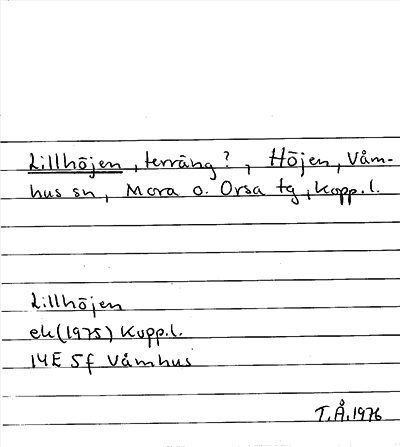 Lillhöjen, terräng?, Höjen, Våm-
hus sn, Mora o. Orsa tg, Kopp.l.
Lillhöjen
ek(1975) Kopp.l.
14E 5f Våmhus
T.Å.1976